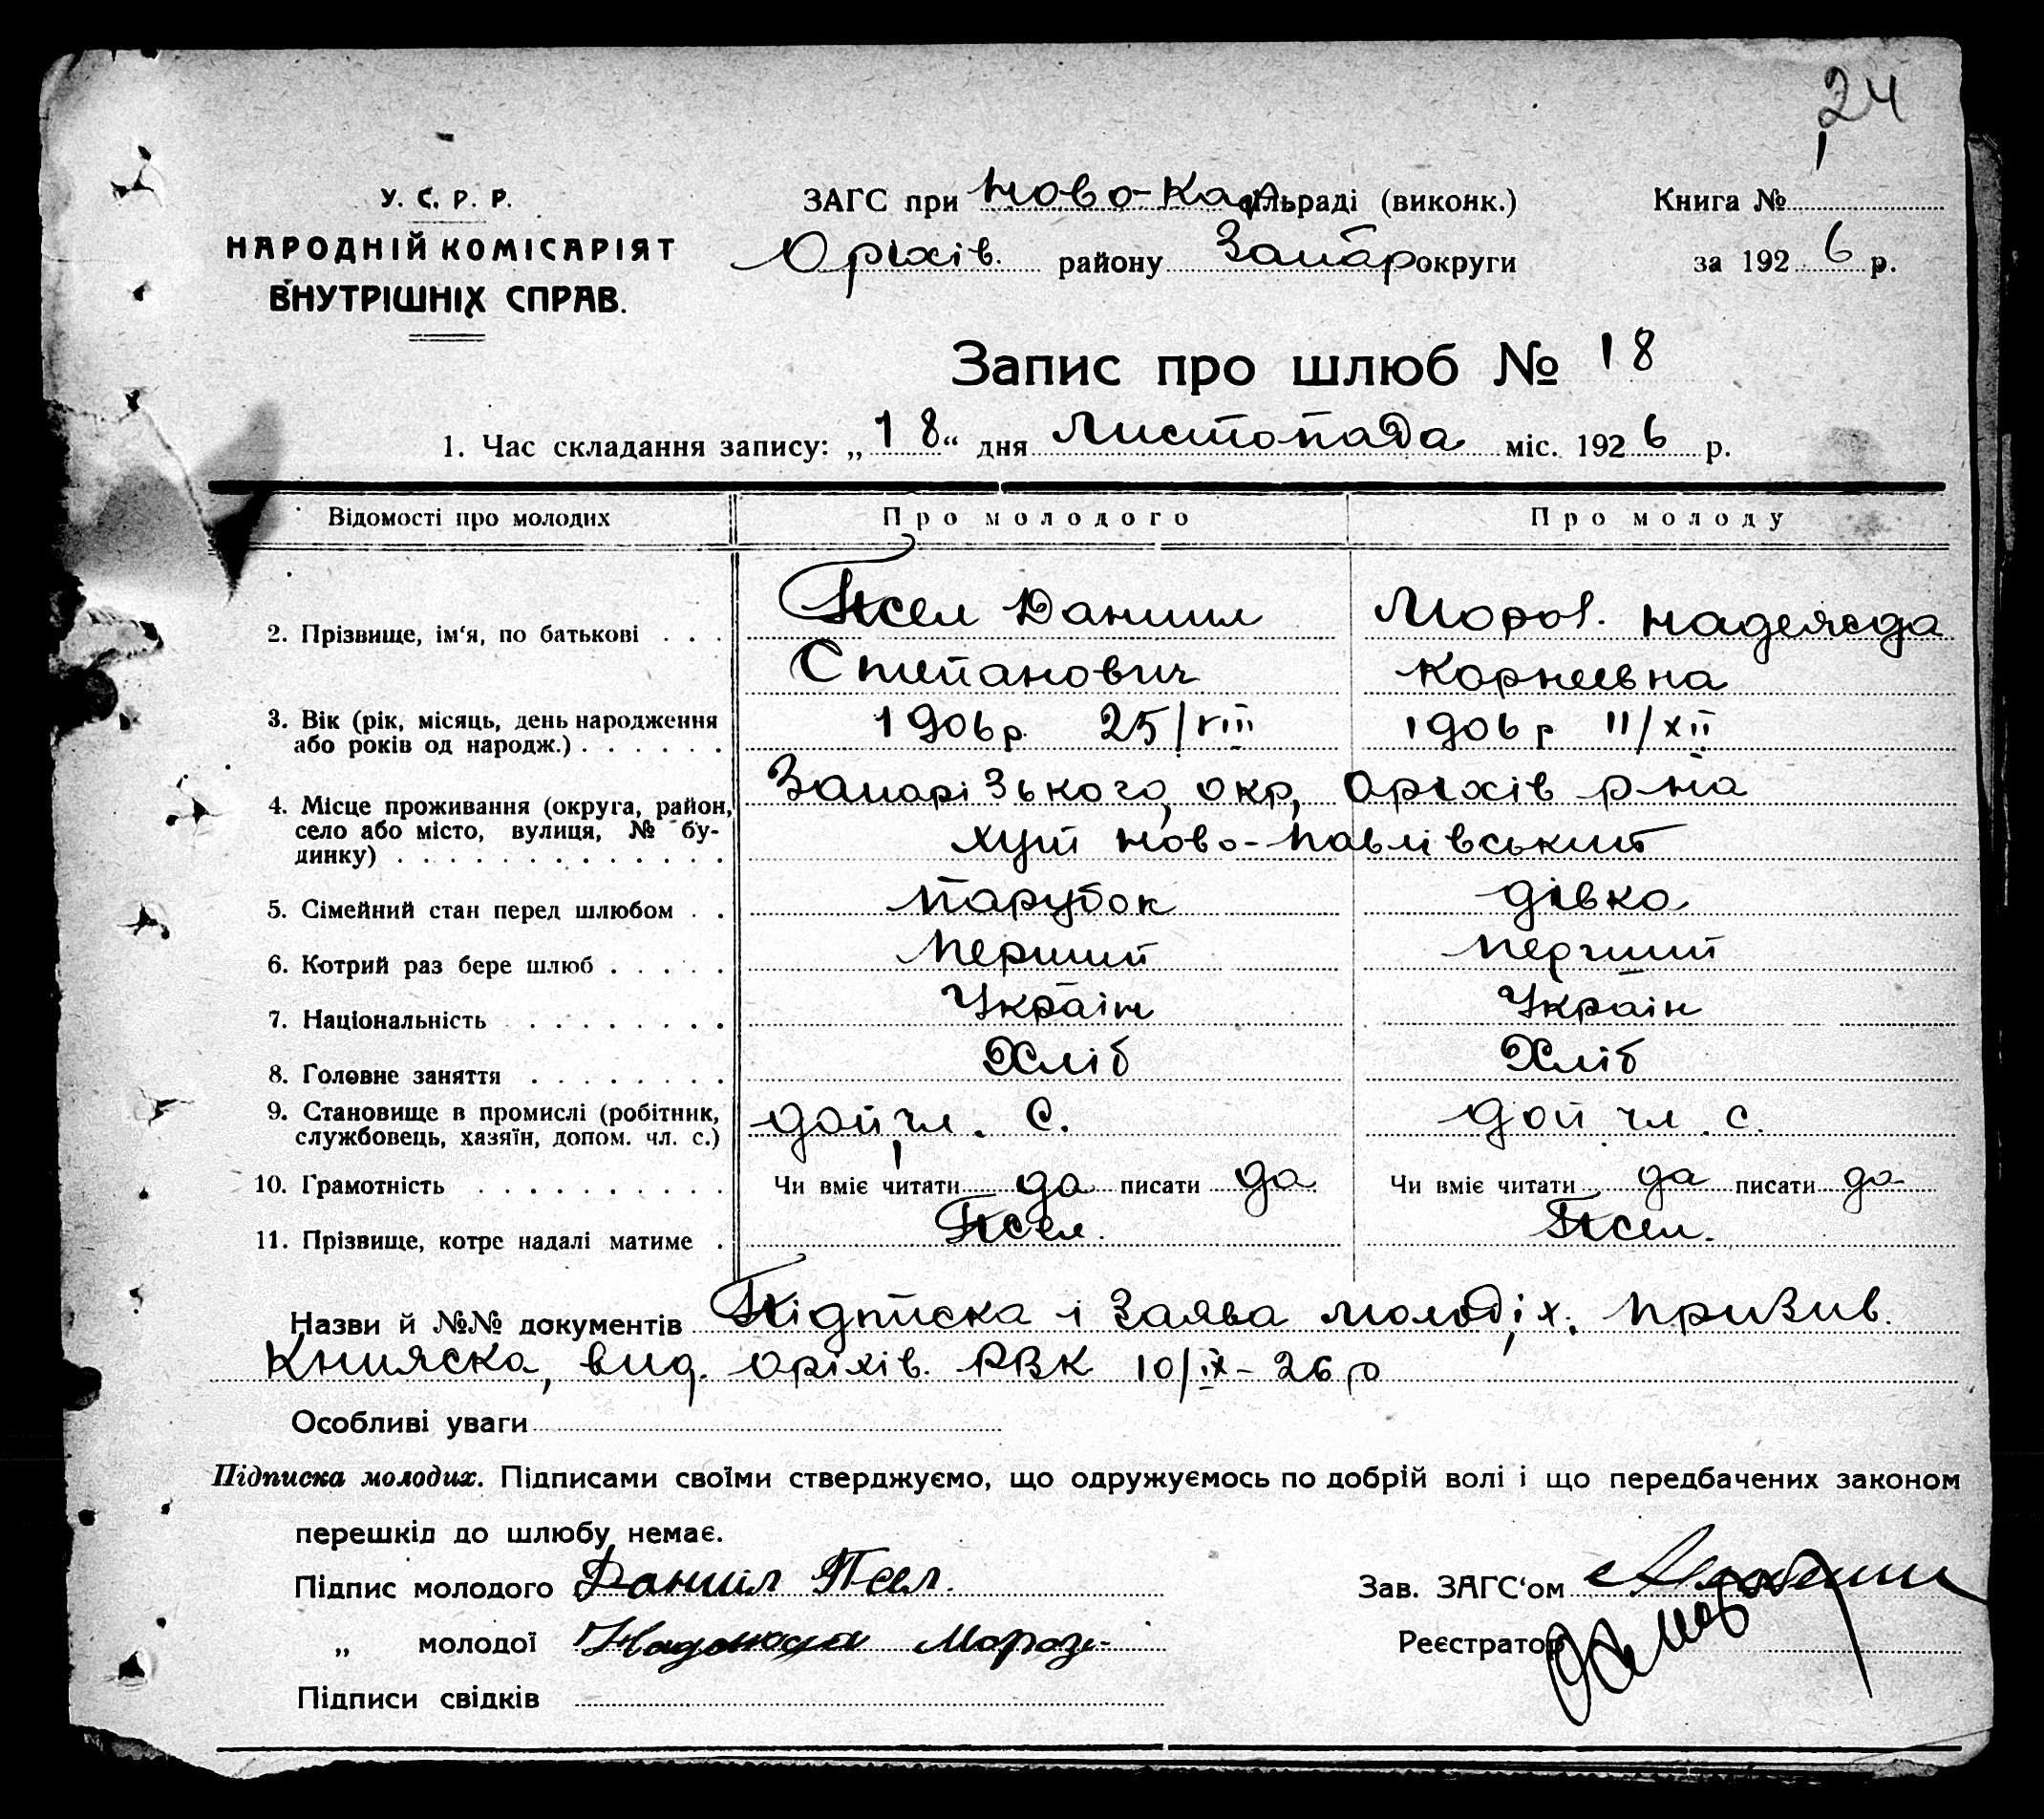 24
У. С. Р. Р.
НАРОДНІЙ КОМІСАРІЯТ
ВНУТРІШНІХ СПРАВ.
ЗАГС при Ново-Кар сільраді (виконк.)
Оріхів. району Запар округи
Книга №
за 1926 р.
Запис про шлюб № 18
1. Час складання запису: „18“ дня Листопада міс. 1926 р.
Відомості про молодих Про молодого Про молоду
2. Прізвище, ім‘я, по батькові . . . Псел Даниил Мороз. Надежда
Степанович Корнеевна
3. Вік (рік, місяць, день народження
або років од народж.) . . . . . . 1906 р. 25/VIII 1906 р 11/XII
4. Місце проживання (округа, район,
село або місто, вулиця, № бу-
динку) . . . . . . . . . . . . .
Запорізького, окр, Оріхів р-на
хут Ново-Павлівський
5. Сімейний стан перед шлюбом . . парубок дівка
6. Котрий раз бере шлюб . . . . . перший перший
7. Національність . . . . . . . . Україн Україн
8. Головне заняття . . . . . . . . Хліб Хліб
9. Становище в промислі (робітник,
службовець, хазяїн, допом. чл. с.) доп, чл. С. доп чл. с.
10. Грамотність . . . . . . . . . Чи вміє читати да писати да Чи вміє читати да писати да
11. Прізвище, котре надалі матиме . Псел. Псел.
Назви й №№ документів Підписка і Заява молодіх, призив.
Книжска, вид. Оріхів. РВК 10/IX-26 р
Особливі уваги
Підписка молодих. Підписами своїми стверджуємо, що одружуємось по добрій волі і що передбачених законом
перешкід до шлюбу немає.
Підпис молодого Даниил Псел.
Зав. ЗАГС‘ом
„ молодої Надежда Мороз-
Реєстратор
Підписи свідків